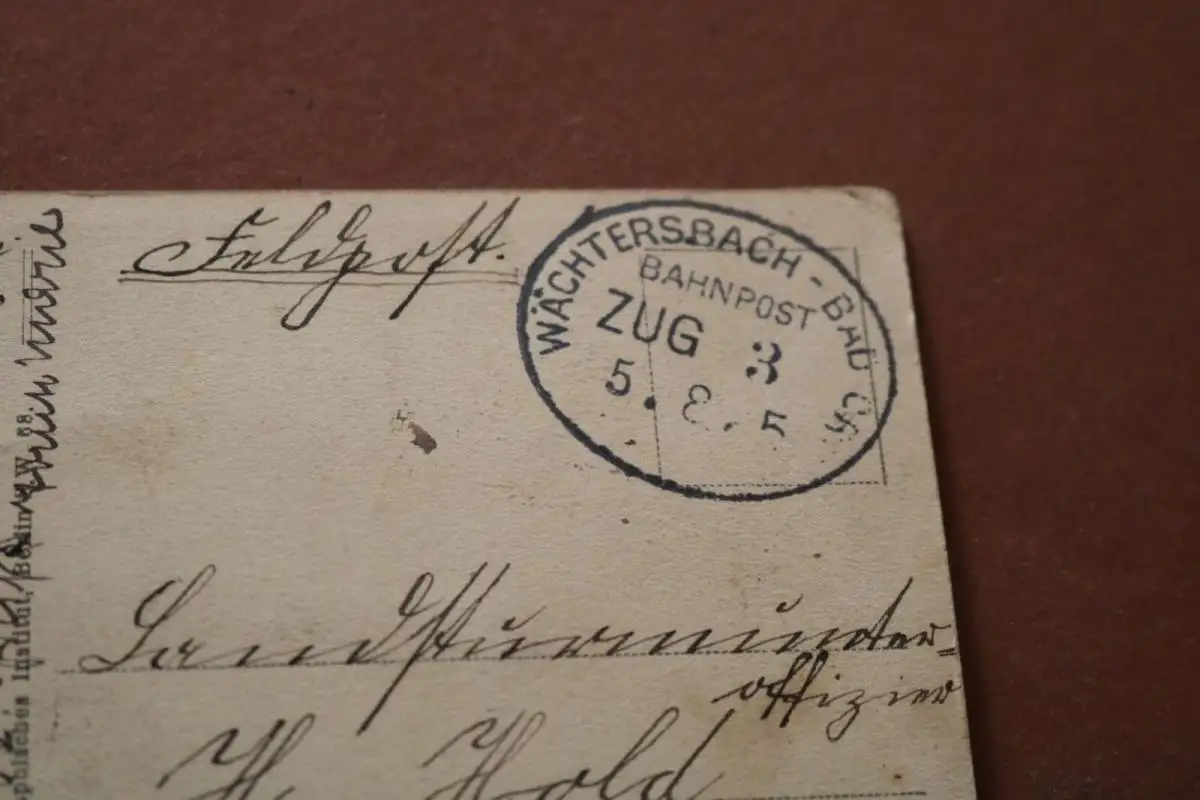 Feldpost.
WÄCHTERSBACH - BAD
BAHNPOST
ZUG 3
5. 8. 5
Landsturmunter-
offizier
H. Hold
Institut, Berlin W